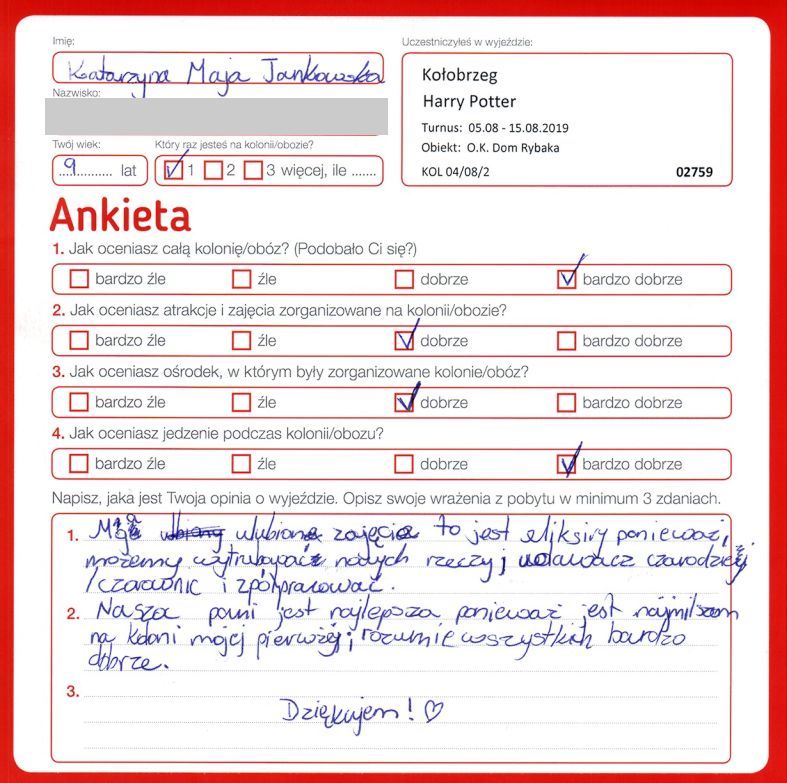 Imię:
Katarzyna Maja Jankowska
Nazwisko:
Twój wiek:
9 lat
Który raz jesteś na kolonii/obozie?
1 2 3 więcej, ile .......
Uczestniczyłeś w wyjeździe:
Kołobrzeg
Harry Potter
Turnus: 05.08 - 15.08.2019
Obiekt: O.K. Dom Rybaka
KOL 04/08/2 02759
Ankieta
1. Jak oceniasz całą kolonię/obóz? (Podobało Ci się?)
bardzo źle źle dobrze bardzo dobrze
2. Jak oceniasz atrakcje i zajęcia zorganizowane na kolonii/obozie?
bardzo źle źle dobrze bardzo dobrze
3. Jak oceniasz ośrodek, w którym były zorganizowane kolonie/obóz?
bardzo źle źle dobrze bardzo dobrze
4. Jak oceniasz jedzenie podczas kolonii/obozu?
bardzo źle źle dobrze bardzo dobrze
Napisz, jaka jest Twoja opinia o wyjeździe. Opisz swoje wrażenia z pobytu w minimum 3 zdaniach.
1. ulubione zajęcie to jest eliksiry ponieważ,
możemy nowych rzeczy j czarodziej
/czarownic i zpółpracować.
2. Nasza pani jest najlepsza ponieważ jest najmilszom
na koloni mojej pierwżej i rozumie wszystkich bardzo
dobrze.
3.
Dziękujem! ♡